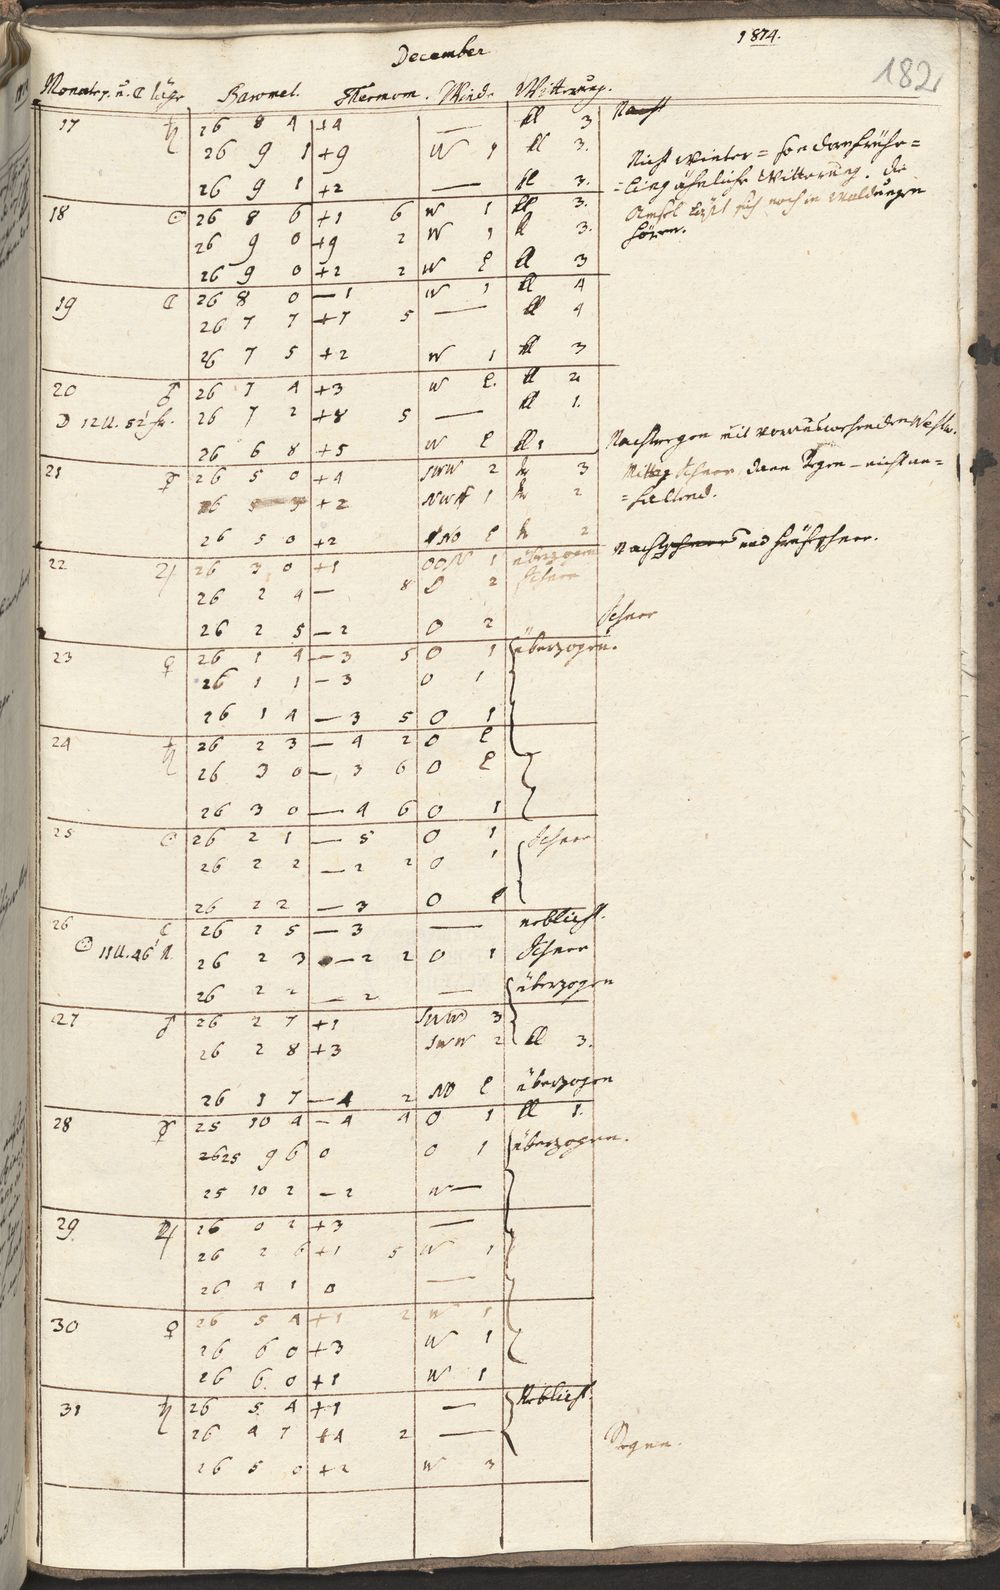 December 1814.
182
Monatsz. u. ☾ läufe Baromet. Thermom. Winde Witterung.
17 ♄ 26 8 4 +4 — kl 3
26 9 1 +9 W 1 kl 3.
26 9 1 +2 — kl 3.
Nicht Winter= sondern frühe=
=lings ähnliche Witterung. Die
Amsel läßt sich noch in Waldungen
hören.
18 ☉ 26 8 6 +1 6 W 1 kl 3.
26 9 0 +9 2 W 1 kl 3.
26 9 0 +2 2 W kl 3
19 ☾ 26 8 0 —1 W 1 kl 4
26 7 7 +7 5 — kl 4
26 7 5 +2 W 1 kl 3
20 ♂ 26 7 4 +3 W kl 2
☽ 12 U. 52' fr. 26 7 2 +8 5 — kl 1.
26 6 8 +5 W kl 1
Nachtregen mit vorauswehenden Westw.
21 ☿ 26 5 0 +4 SWW 2 tr 3
+2 1 tr 2
26 5 0 +2 tr 2
Mittag Schnee, dann Regen — nicht an=
=haltend.
22 ♃ 26 3 0 +1 OON 1 überzogen
Nachtschnee und Frühschnee.
26 2 4 — 8 O 2 Schnee
26 2 5 —2 O 2 Schnee
23 ♀ 26 1 4 —3 5 O 1 überzogen.
26 1 1 —3 O 1
26 1 4 —3 5 O 1
24 ♄ 26 2 3 —4 2 O
26 3 0 —3 6 O
26 3 0 —4 6 O 1
25 ☉ 26 2 1 —5 O 1 Schnee
26 2 2 —2 2 O 1
26 2 2 —3 O
26 ☾ 26 2 5 —3 — neblicht.
11 U. 46' N. 26 2 3 —2 2 O 1 Schnee
26 2 2 —2 — überzogen
27 ♂ 26 2 7 +1 SWW 3
26 2 8 +3 SWW 2 kl 3.
26 1 7 —4 2 NO überzogen
28 ☿ 25 10 4 —4 4 O 1 kl 1.
2625 9 6 0 O 1 überzogen.
25 10 2 —2 W—
29 ♃ 26 0 2 +3 —
26 2 6 +1 5 W 1
26 4 1 0 —
30 ♀ 26 5 4 +1 2 W 1
26 6 0 +3 W 1
26 6 0 +1 W 1
31 ♄ 26 5 4 +1 — Neblicht.
26 4 7 +4 2 —
Regen.
26 5 0 +2 W 3